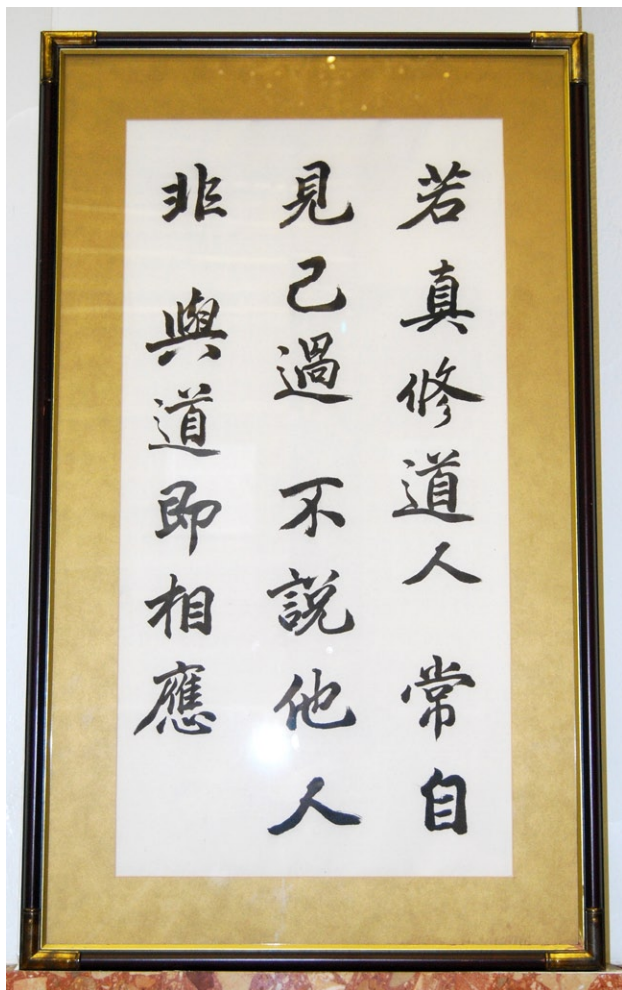 若真修道人 常自
見己過 不說他人
非 與道即相應